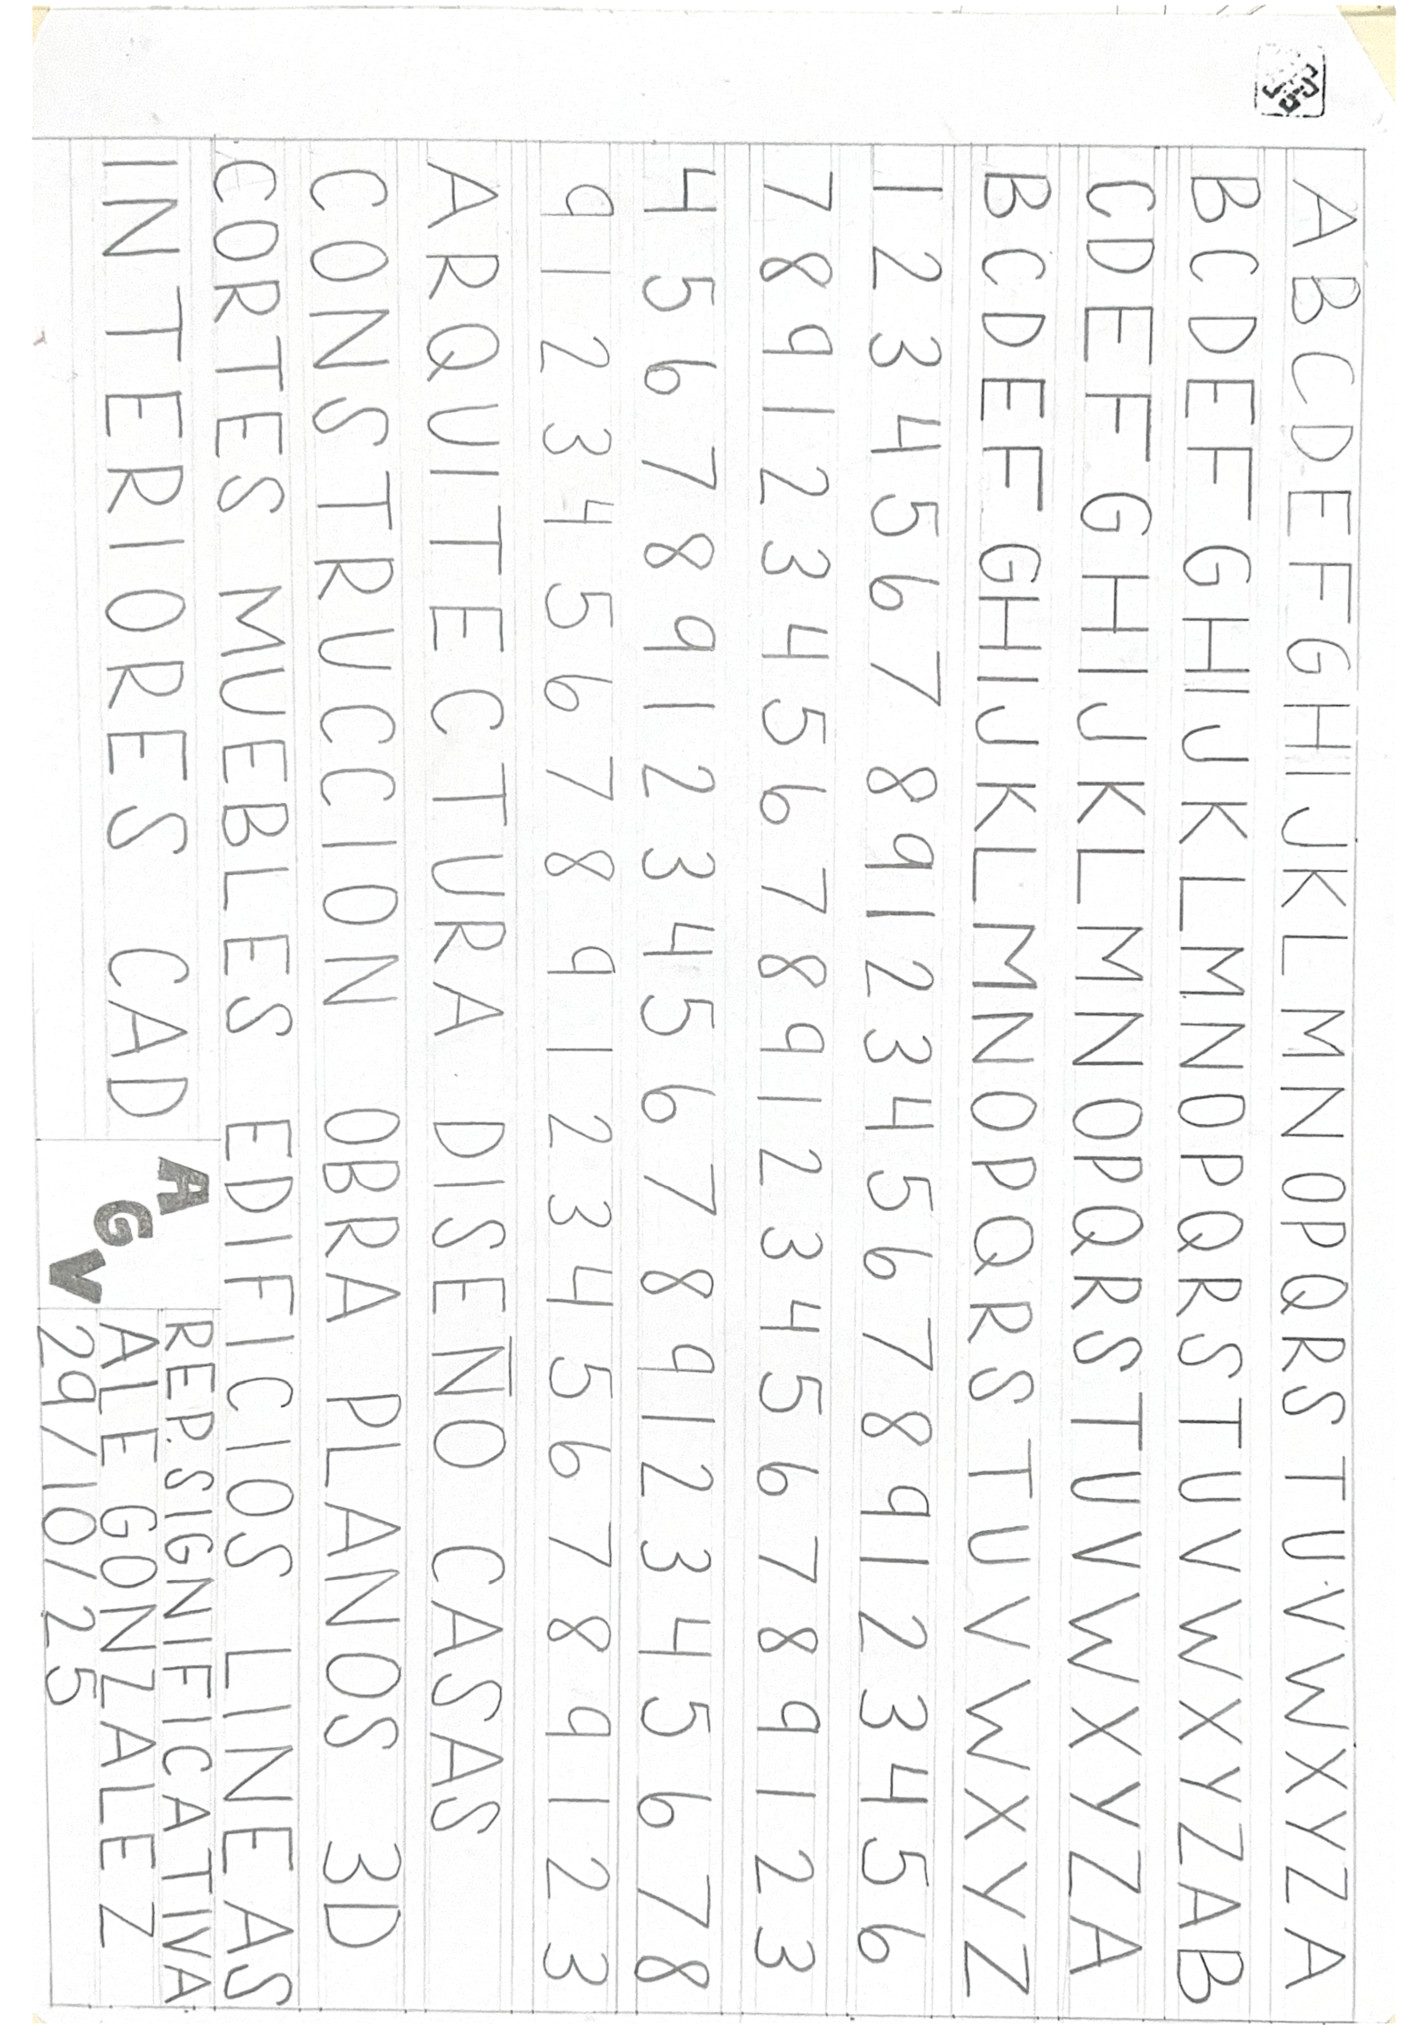 A B C D E F G H I J K L M N O P Q R S T U V W X Y Z A
B C D E F G H I J K L M N O P Q R S T U V W X Y Z A B
C D E F G H I J K L M N O P Q R S T U V W X Y Z A
B C D E F G H I J K L M N O P Q R S T U V W X Y Z
1 2 3 4 5 6 7 8 9 1 2 3 4 5 6 7 8 9 1 2 3 4 5 6
7 8 9 1 2 3 4 5 6 7 8 9 1 2 3 4 5 6 7 8 9 1 2 3
4 5 6 7 8 9 1 2 3 4 5 6 7 8 9 1 2 3 4 5 6 7 8
9 1 2 3 4 5 6 7 8 9 1 2 3 4 5 6 7 8 9 1 2 3
ARQUITECTURA DISEÑO CASAS
CONSTRUCCION OBRA PLANOS 3D
CORTES MUEBLES EDIFICIOS LINEAS
INTERIORES CAD
AGV
REP. SIGNIFICATIVA
ALE GONZALEZ
29/10/25